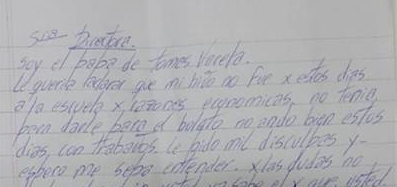 Sra Directora.
Soy el papa de Tomas Varela.
le queria  que mi hijo no fue x estos dias
a la escuela x razones economicas, no tenia
para darle para el boleto no ando bien estos
dias, con trabajos. Le pido mil disculpas y
espero me sepa entender. x las dudas no
ya sabe el x que, usted